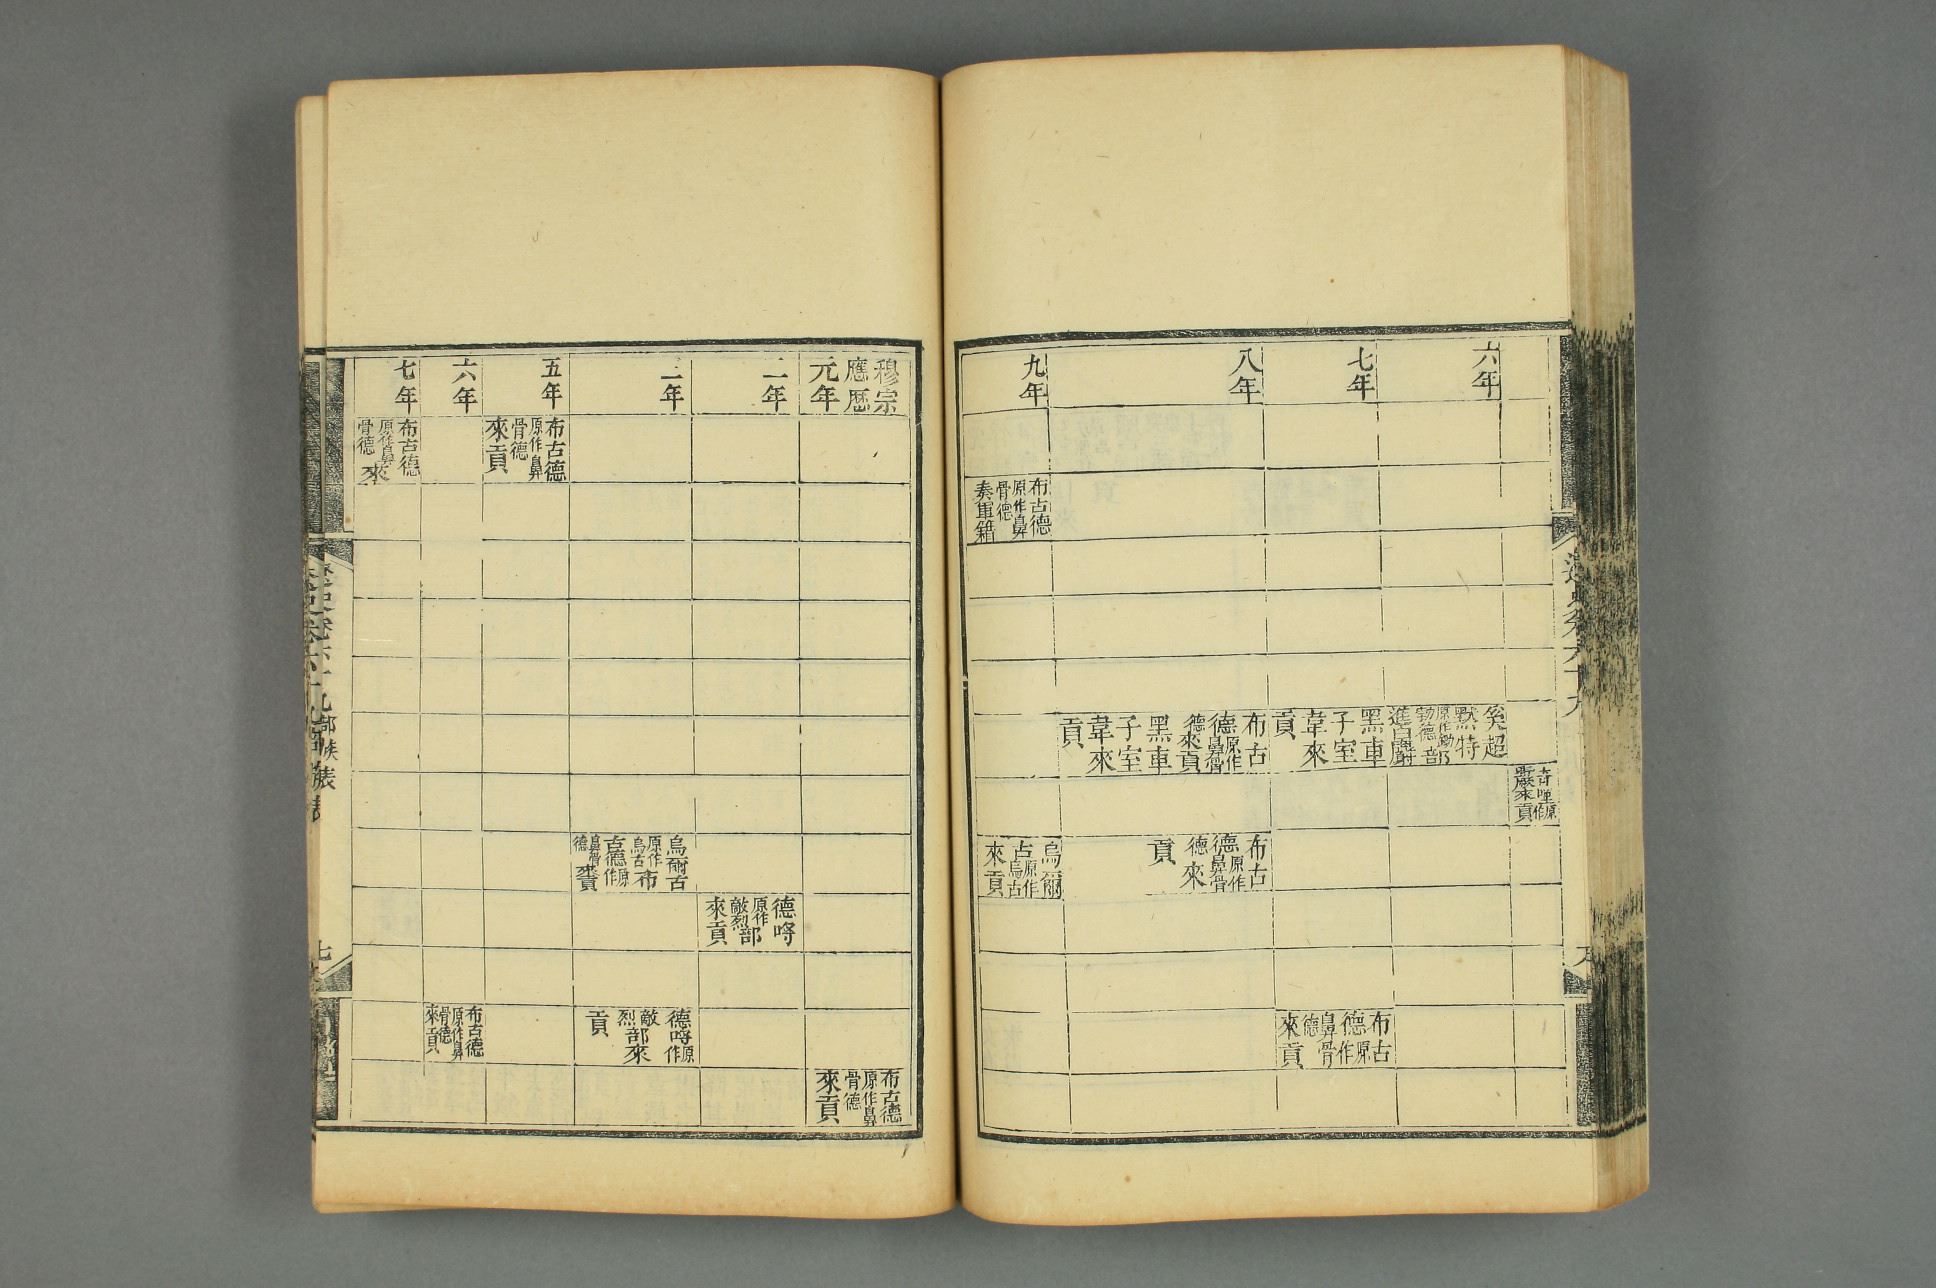 六年
奚超
默特
原作勘
勃德部
進白麝
七年
黑車
子室
韋來
貢
布古
德原作
鼻骨
德
來貢
八年
布古
德原作
鼻骨
德來貢
黑車
子室
韋來
貢
布古
德原作
鼻骨
德來
貢
九年
布古德
原作鼻
骨德
奏軍籍
烏爾
古原作
烏古
來貢
穆宗
應曆
元年
布古德
原作鼻
骨德
來貢
二年
德哷
原作
敵烈部
來貢
三年
烏爾古
原作
烏古布
古德原作
鼻骨
德來貢
德哷原作
敵
烈部來
貢
五年
布古德
原作鼻
骨德
來貢
六年
布古德
原作鼻
骨德
來貢
七年
布古德
原作鼻
骨德來
遼史卷六十九部族表
七